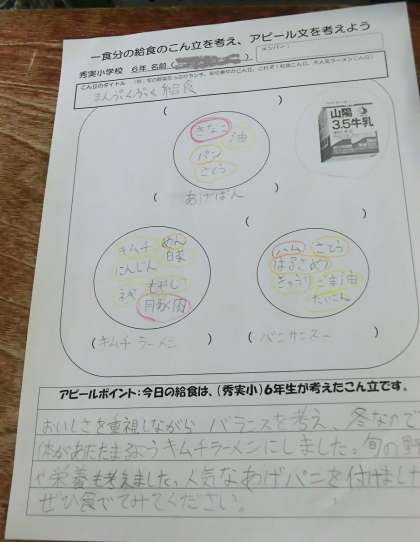 一食分の給食のこん立を考え、アピール文を考えよう
秀実小学校 6年 名前 ( )
メンバー:
こん立のタイトル
まんぷくぷく給食
きなこ
油
パン
さとう
山陽
3.5牛乳
( あげぱん )
キムチ めん
白菜
にんじん
ネギ もやし
月あく肉
ハム さとう
はるさめ
きゅうり ごま油
だいこん
( キムチラーメン )
( バンサンスー )
アピールポイント:今日の給食は、(秀実小)6年生が考えたこん立です。
おいしさを重視しながら バランスを考え、冬なので
体があたたまるようキムチラーメンにしました。旬の野
や栄養も考えました。人気なあげパンを付けました
ぜひ食べてみてください。